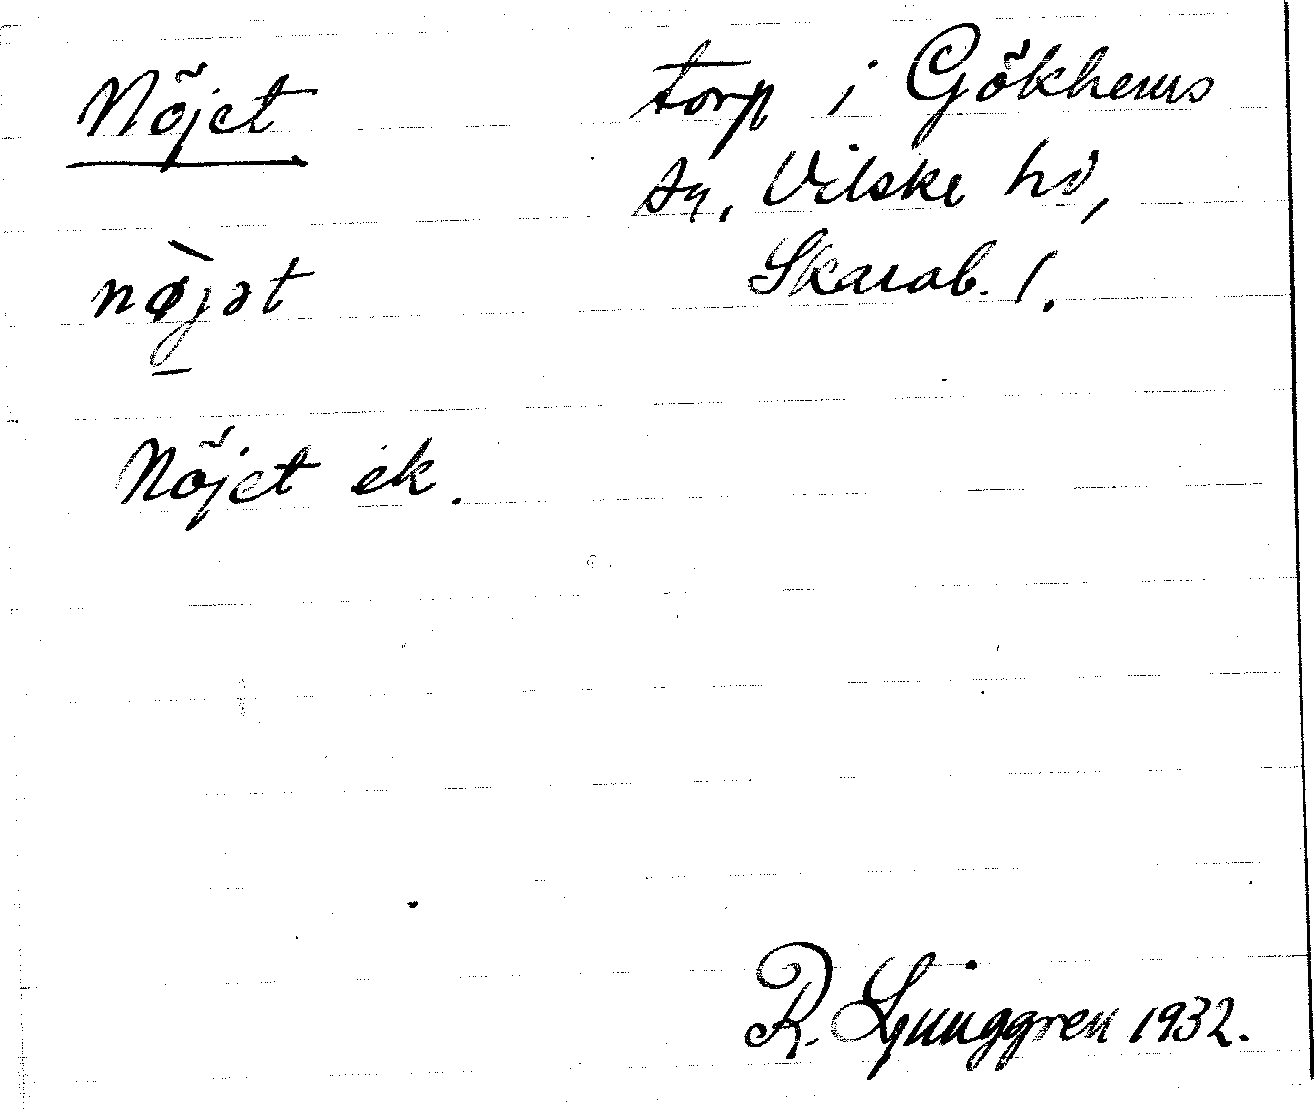 Nöjet
torp i Gökhems
sn, Vilske hd,
Skarab. l.
nø̀jət
Nöjet ek.
R. Ljunggren 1932.